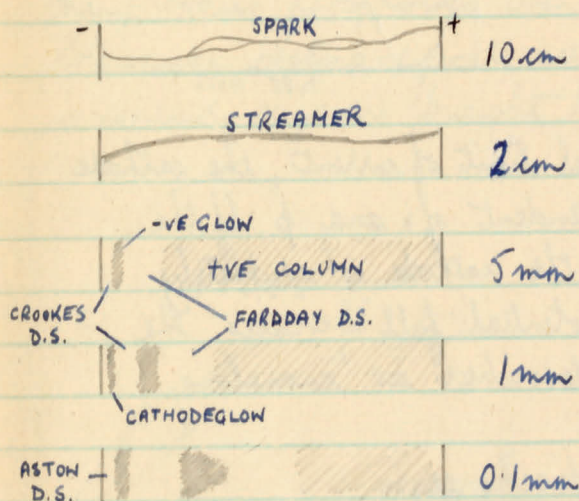 - SPARK +
10 cm
STREAMER
2 cm
-VE GLOW
+VE COLUMN
5 mm
CROOKES
D.S.
FARADAY D.S.
1 mm
CATHODE GLOW
ASTON
D.S.
0.1 mm